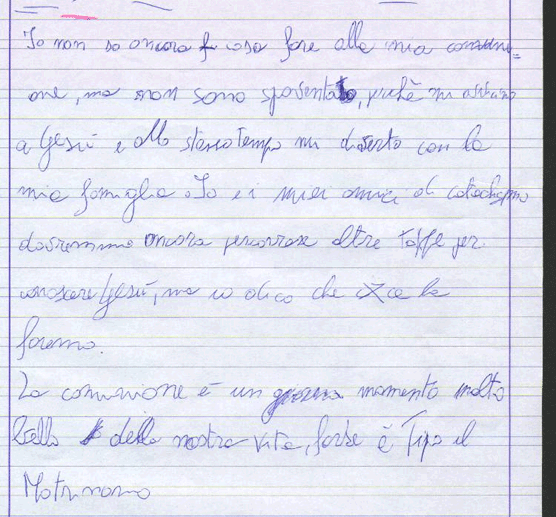 Io non so ancora cosa fare alla mia comuni=
one, ma non sono spaventato, perchè mi avicino
a Gesù e allo stesso tempo mi diverto con la
mia famiglia. Io e i miei amici di catechismo
dovremmo ancora percorrere altre taffe per
conoscere Gesù, ma io dico che ce la
faremo.
La comunione è un momento molto
bello della nostra vita, forse è Tipo il
Matrimonio